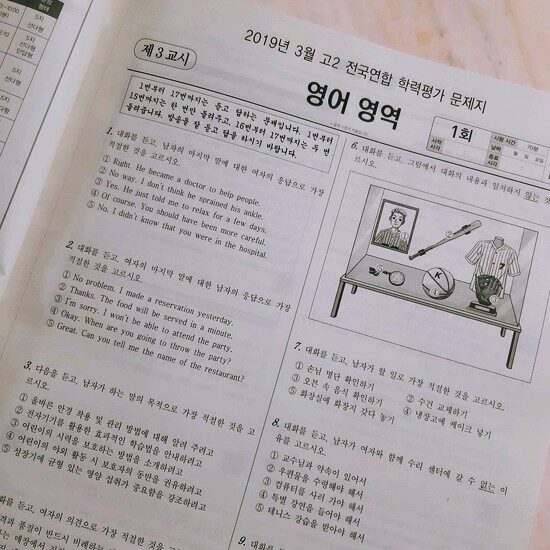 2019년 3월 고2 전국연합 학력평가 문제지
제3교시
영어 영역
1회
시험 시간 70분
날짜 월 일 요일
시작 시각 :
종료 시각 :
1번부터 17번까지는 듣고 답하는 문제입니다. 1번부터
15번까지는 한 번만 들려주고, 16번부터 17번까지는 두 번
들려줍니다. 방송을 잘 듣고 답을 하시기 바랍니다.
1. 대화를 듣고, 남자의 마지막 말에 대한 여자의 응답으로 가장
적절한 것을 고르시오.
① Right. He became a doctor to help people.
② No way. I don't think he sprained his ankle.
③ Yes. He just told me to relax for a few days.
④ Of course. You should have been more careful.
⑤ No. I didn't know that you were in the hospital.
2. 대화를 듣고, 여자의 마지막 말에 대한 남자의 응답으로 가장
적절한 것을 고르시오.
① No problem. I made a reservation yesterday.
② Thanks. The food will be served in a minute.
③ I'm sorry. I won't be able to attend the party.
④ Okay. When are you going to throw the party?
⑤ Great. Can you tell me the name of the restaurant?
3. 다음을 듣고, 남자가 하는 말의 목적으로 가장 적절한 것을 고
르시오.
① 올바른 안경 착용 및 관리 방법에 대해 알려 주려고
② 전자기기를 활용한 효과적인 학습법을 안내하려고
③ 어린이의 시력을 보호하는 방법을 소개하려고
④ 어린이의 야외 활동 시 보호자의 동반을 권유하려고
⑤ 성장기에 균형 있는 영양 섭취가 중요함을 강조하려고
대화를 듣고, 여자의 의견으로 가장 적절한 것을 고르시오.
격과 품질이 반드시 비례하는
6. 대화를 듣고, 그림에서 대화의 내용과 일치하지 않는 것
르시오.
7. 대화를 듣고, 남자가 할 일로 가장 적절한 것을 고르시오.
① 손님 명단 확인하기
② 수건 교체하기
③ 오븐 속 음식 확인하기
④ 냉장고에 케이크 넣기
⑤ 화장실에 화장지 갖다 놓기
8. 대화를 듣고, 남자가 여자와 함께 수리 센터에 갈 수 없는 이
유를 고르시오.
① 교수님과 약속이 있어서
② 우편물을 수령해야 해서
③ 컴퓨터를 사러 가야 해서
④ 특별 강연을 들어야 해서
⑤ 테니스 강습을 받아야 해서
9. 대화를 듣고,